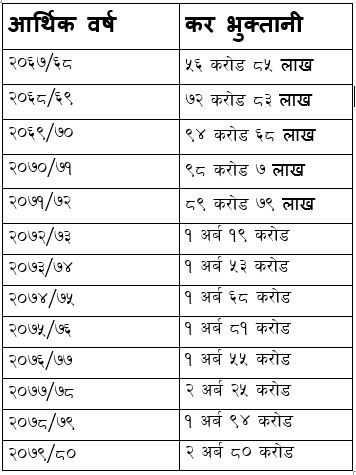 आर्थिक वर्ष कर भुक्तानी
२०६७/६८ ५६ करोड ८५ लाख
२०६८/६९ ७२ करोड ८३ लाख
२०६९/७० ९४ करोड ६८ लाख
२०७०/७१ ९८ करोड ७ लाख
२०७१/७२ ८९ करोड ७९ लाख
२०७२/७३ १ अर्ब १९ करोड
२०७३/७४ १ अर्ब ५३ करोड
२०७४/७५ १ अर्ब ६८ करोड
२०७५/७६ १ अर्ब ८१ करोड
२०७६/७७ १ अर्ब ५५ करोड
२०७७/७८ २ अर्ब २५ करोड
२०७८/७९ १ अर्ब ९४ करोड
२०७९/८० २ अर्ब ८० करोड